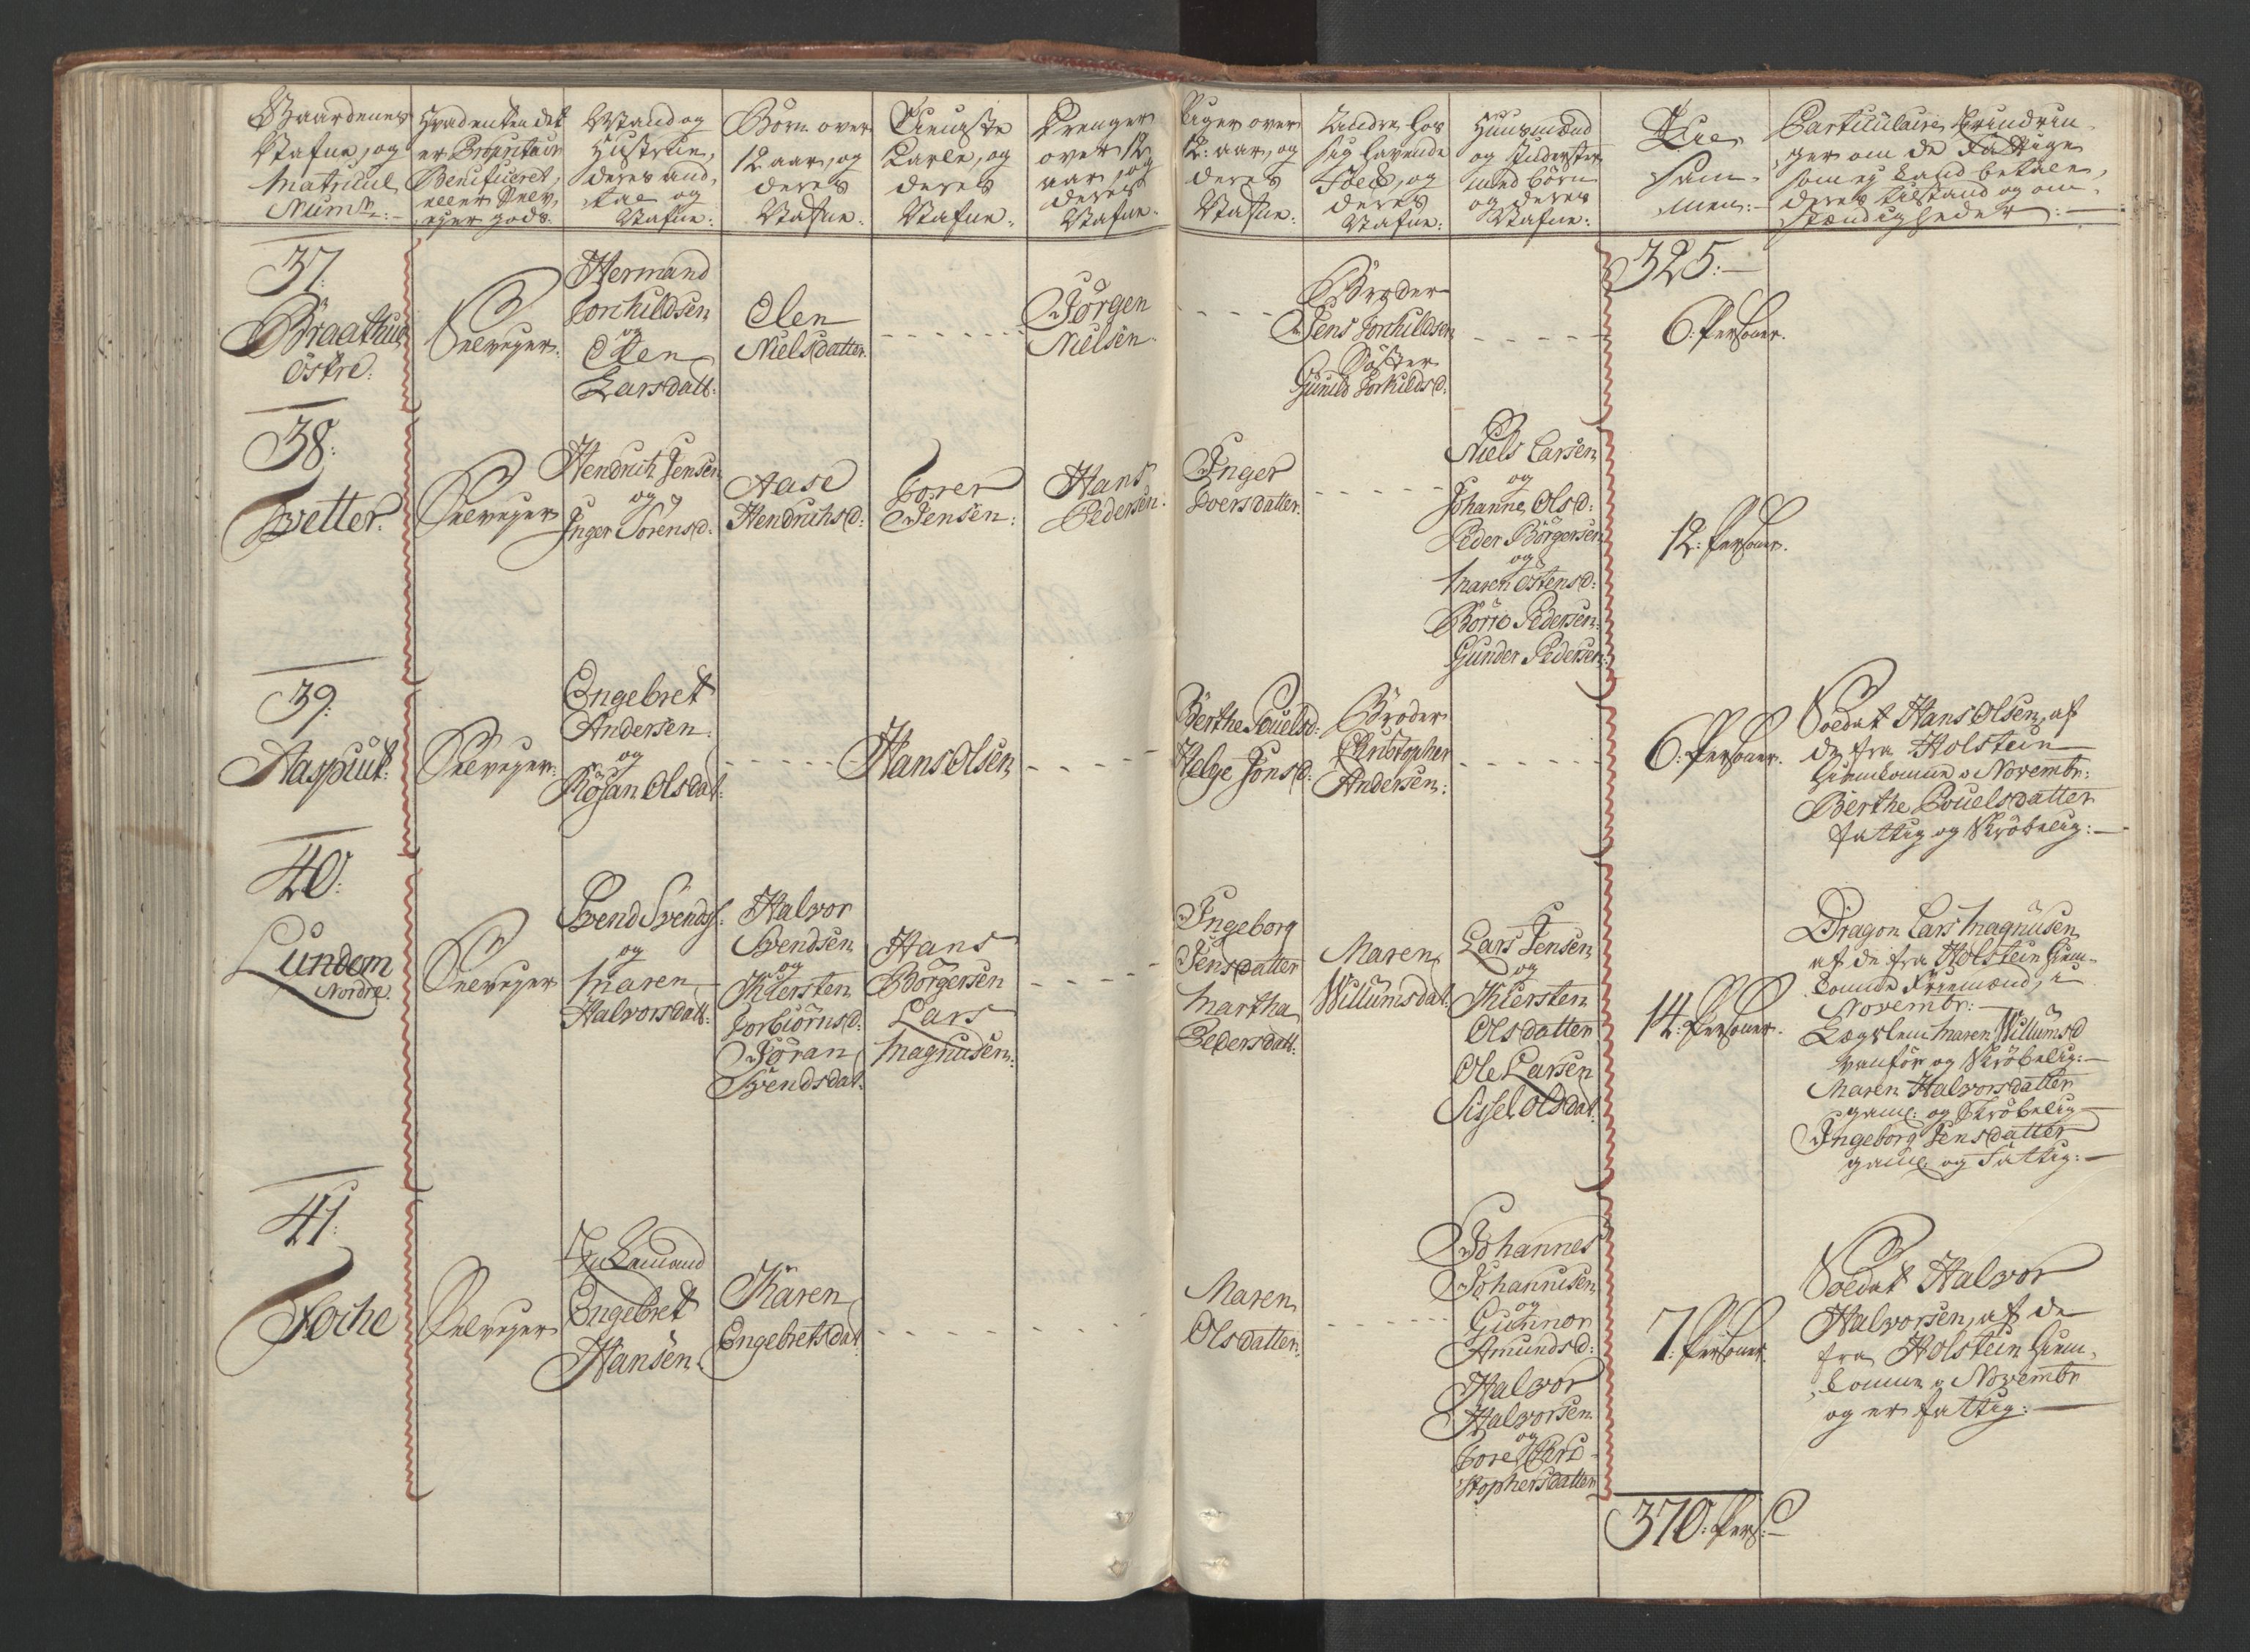 Gaardenes
Nafne, og
Matricul
Num:
Hvad enten det
er Proprietair
Beneficeret,
eller Selv
eyer gods.
Mand og
Hustrue,
deres and
tal og
Nafne:
Börn over
12 aar, og
deres
Nafne:
Tieniste
Karle, og
deres
Nafne:
Drenger
over 12
aar, og
deres
Nafne:
Piger over
12: aar, og
deres
Nafne:
Andre hos
sig havende
Folk, og
deres
Nafne:
Huusmænd
og Inderster
med börn
og deres
Nafne:
Til
sam-
men:
Particulaire Erindrin-
ger om de Fattige
som ej kand betale,
deres tilstand og om-
stændigheder:
37.
Braathen
östre:
Selveyer.
Hermand
Torchildsen
og
Elen
Larsdatt:
Elen
Nielsdatter.
Jörgen
Nielsen.
Broder
Jens Torchildsen
Söster
Gunild Torkildsd:
325:
6. Persohner.
38:
Tvetter.
Selveyer
Hendrich Jensen
og
Inger Sörensd:
Aase
Hendrichsd:
Torer
Jensen:
Hans
Pedersen:
Inger
Joersdatter.
Niels Larsen
og
Johanne Olsd:
Peder Börgersen
og
Maren Östensd:
Börre Pedersen:
Gunder Pedersen:
12: Persohner.
39:
Aasputt:
Selveyer:
Engebret
Andersen:
og
Rösan Olsdat:
Hans Olsen
Berthe Pouelsd:
Helge Jonsd:
Broder
Christopher
Andersen:
6: Persohner.
Soldat Hans Olsen, af
de fra Holstein
hiemkomne i Novembr:
Berthe Pouelsdatter
fattig og Skröbelig:
40:
Lundem
Nordre.
Selveyer
Svend Svends:
og
Maren
Halvorsdatt:
Halvor
Svendsen
og
Kiersten
Torbiörnsd:
Jöran
Svendsdat.
Hans
Börgersen
Lars
Magnusen:
Ingeborg
Jensdatter
Martha
Pedersdatt:
Maren
Willumsdat.
Lars Jensen
og
Kiersten
Olsdatter
Ole Larsen
Sissel Olsdat:
14: Persohner.
Dragon Lars Magnusen
af de fra Holstein hiem-
komne Friemænd, i
Novembr:
Lægslem Maren Willumsd
vanför og Skröbelig:
Maren Halvorsdatter
gaml: og Skröbelig
Ingeborg Jensdatter
gaml: og Fattig:
41:
Foche
Selveyer
Enkemand
Engebret
Hansen
Karen
Engebretsdat.
Maren
Olsdatter.
Johannes
Johannesen
og
Gunnor
Amundsd:
Halvor
Halvorsen
og
Tore Chri-
stophersdatter
7: Persohner.
Soldat Halvor
Halvorsen, af de
fra Holstein hiem-
komne i Novembr
og er fattig:
370: Pers: